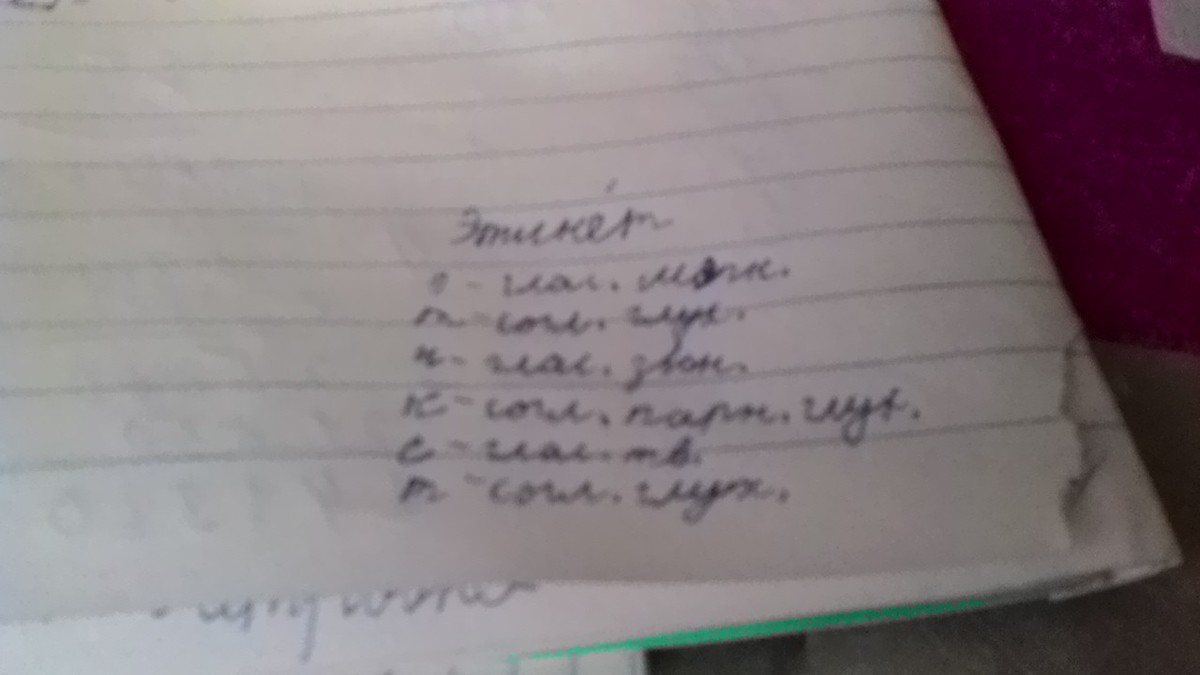 Этике́т
э - глас. мягк.
т - согл. глух.
и - глас. звон.
к - согл. парн. глух.
е - глас. тв.
т - согл. глух.